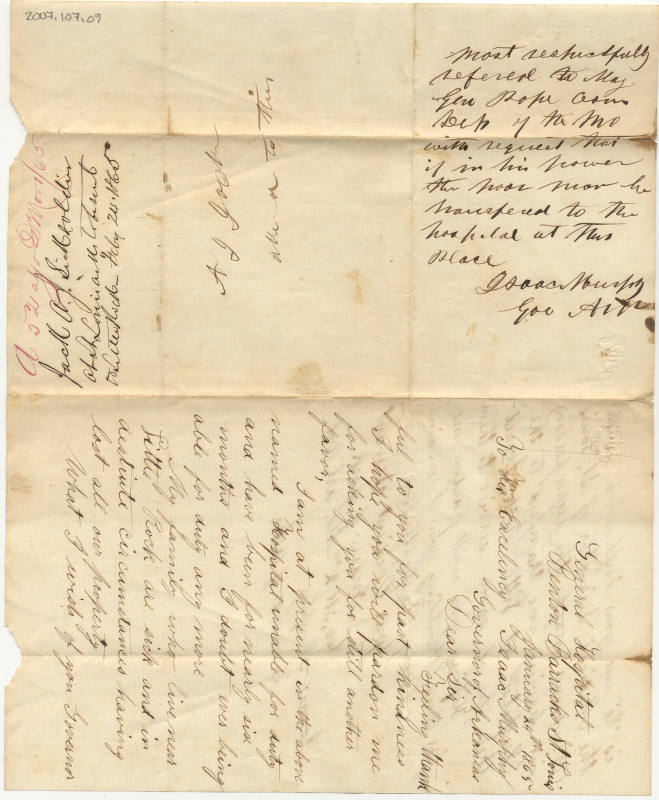 2007.107.09
most respectfully
refered to Maj
Gen Pope Com
Dep of the Mo
with request that
if in his power
the poor man be
transfered to the
hospital at this
place
Isaac Murphy
Gov Ark
A 521
Jack
Little Rock Feby 20. 1865
General Hospital
Benton Barracks St Louis
January 24th 1865
To His Excellency
Isaac Murphy
Governor of Arkansas
Dear Sir
Feeling thank
ful to you for past kindness
I hope you will pardon me
for asking you for still another
favor,
I am at present in the above
named Hospital unable for duty
and have been for nearly six
months and I doubt ever being
able for duty any more
My family who live near
Little Rock are sick and in
destitute circumstances having
lost all our property
What I wish of you Governor